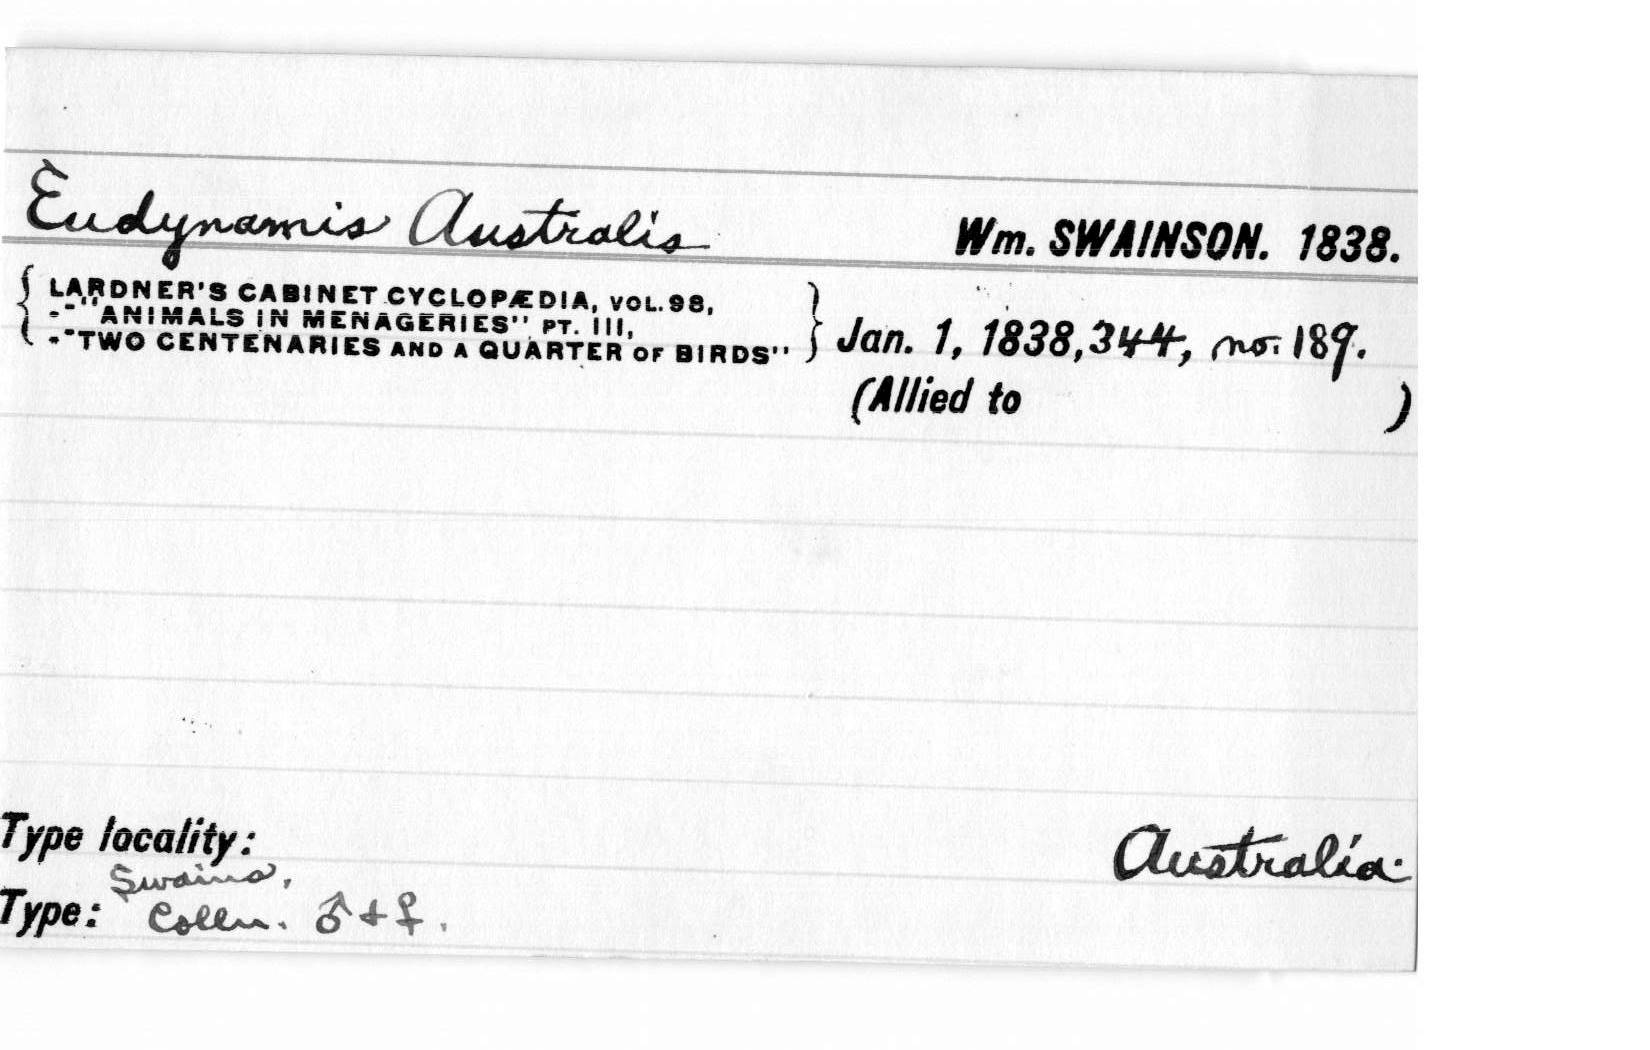 Eudynamis Australis Wm. SWAINSON. 1838.
{ LARDNER'S CABINET CYCLOPÆDIA, VOL. 98,
-"ANIMALS IN MENAGERIES" PT. III,
-"TWO CENTENARIES AND A QUARTER OF BIRDS" } Jan. 1, 1838, 344, no. 189.
(Allied to )
Type locality: Australia.
Swains,
Type: Colln. ♂ + ♀.